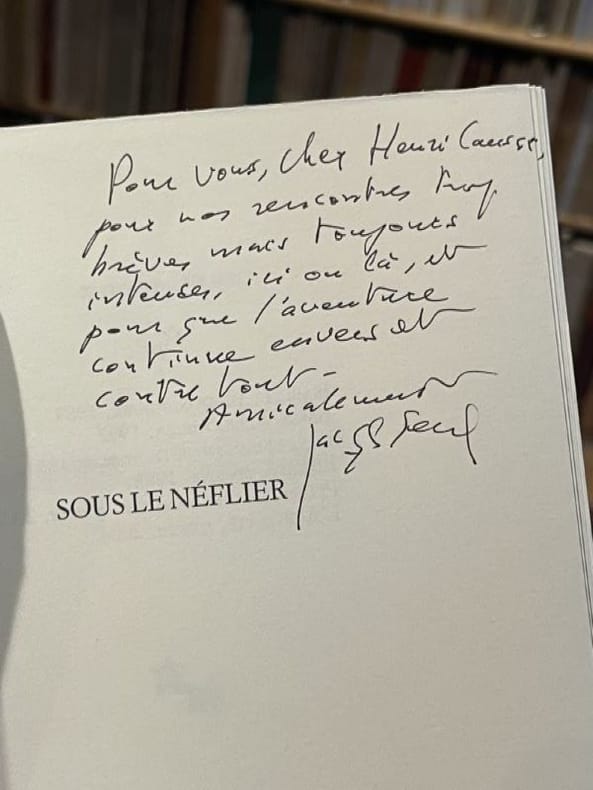 Pour vous, cher Henri Causse,
pour nos rencontres trop
brèves mais toujours
intenses, ici ou là, et
pour que l'aventure
continue envers et
contre tout -
Amicalement
Jacques
SOUS LE NÉFLIER